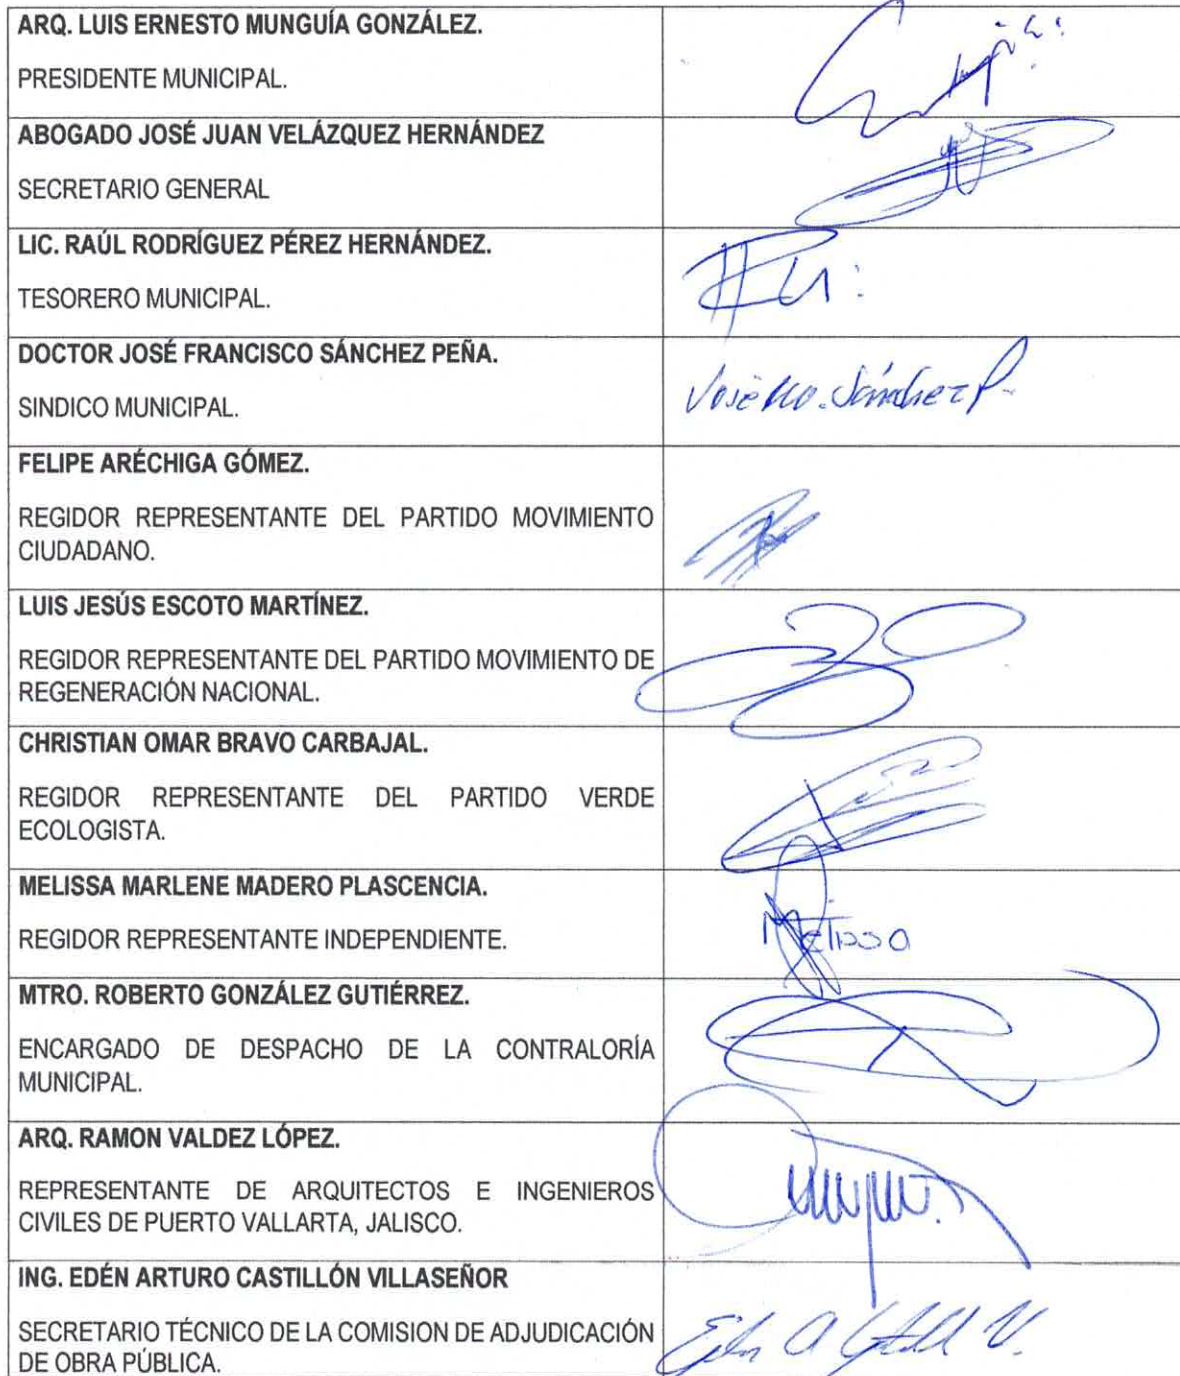 ARQ. LUIS ERNESTO MUNGUÍA GONZÁLEZ.
PRESIDENTE MUNICIPAL.
ABOGADO JOSÉ JUAN VELÁZQUEZ HERNÁNDEZ
SECRETARIO GENERAL
LIC. RAÚL RODRÍGUEZ PÉREZ HERNÁNDEZ.
TESORERO MUNICIPAL.
DOCTOR JOSÉ FRANCISCO SÁNCHEZ PEÑA.
SINDICO MUNICIPAL.
José Sánchez P.
FELIPE ARÉCHIGA GÓMEZ.
REGIDOR REPRESENTANTE DEL PARTIDO MOVIMIENTO
CIUDADANO.
LUIS JESÚS ESCOTO MARTÍNEZ.
REGIDOR REPRESENTANTE DEL PARTIDO MOVIMIENTO DE
REGENERACIÓN NACIONAL.
CHRISTIAN OMAR BRAVO CARBAJAL.
REGIDOR REPRESENTANTE DEL PARTIDO VERDE
ECOLOGISTA.
MELISSA MARLENE MADERO PLASCENCIA.
REGIDOR REPRESENTANTE INDEPENDIENTE.
Melissa
MTRO. ROBERTO GONZÁLEZ GUTIÉRREZ.
ENCARGADO DE DESPACHO DE LA CONTRALORÍA
MUNICIPAL.
ARQ. RAMON VALDEZ LÓPEZ.
REPRESENTANTE DE ARQUITECTOS E INGENIEROS
CIVILES DE PUERTO VALLARTA, JALISCO.
ING. EDÉN ARTURO CASTILLÓN VILLASEÑOR
SECRETARIO TÉCNICO DE LA COMISION DE ADJUDICACIÓN
DE OBRA PÚBLICA.